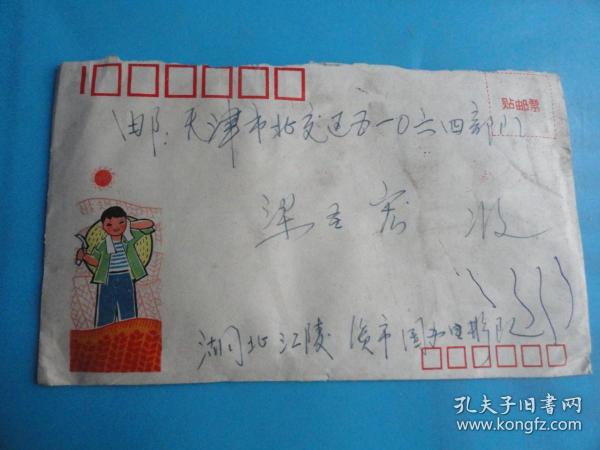 贴邮票
邮：天津市北交区五一〇六四部队
梁玉宏 收
湖北江陵 资市 电影队
孔夫子旧书网
www.kongfz.com